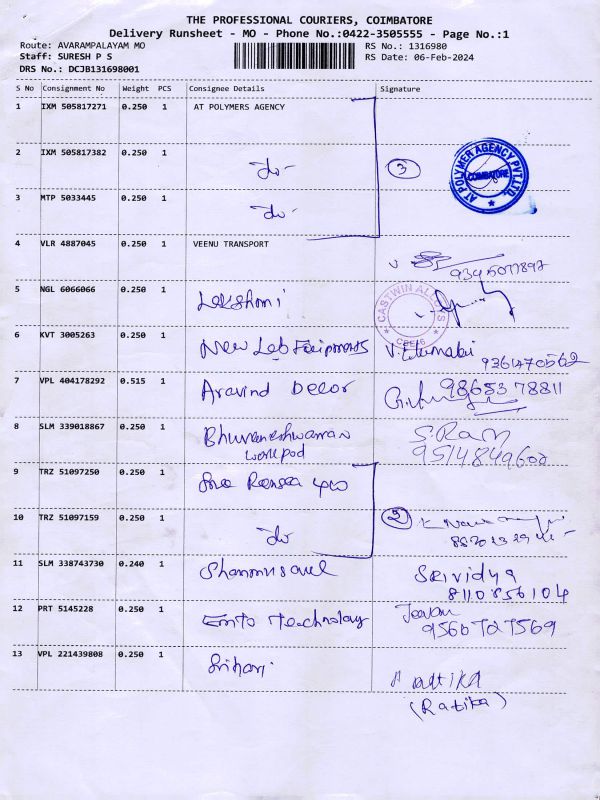 THE PROFESSIONAL COURIERS, COIMBATORE
Delivery Runsheet - MO - Phone No.:0422-3505555 - Page No.:1
Route: AVARAMPALAYAM MO RS No.: 1316980
Staff: SURESH P S RS Date: 06-Feb-2024
DRS No.: DCJB131698001
S No Consignment No Weight PCS Consignee Details Signature
1 IXM 505817271 0.250 1 AT POLYMERS AGENCY
2 IXM 505817382 0.250 1 do - 3
AT POLYMER AGENCY PVT.LTD. COIMBATORE
3 MTP 5033445 0.250 1 do -
4 VLR 4887045 0.250 1 VEENU TRANSPORT
5 NGL 6066066 0.250 1 Lakshmi
CASTWIN ALLOYS
6 KVT 3005263 0.250 1 New Lab 9361470562
7 VPL 404178292 0.515 1 Aravind Decor 9865378811
8 SLM 339018867 0.250 1 Bhuvaneshwaran S.Ram
9514849600
9 TRZ 51097250 0.250 1
10 TRZ 51097159 0.250 1 do 2
11 SLM 338743730 0.240 1 Srividya
8110856104
12 PRT 5145228 0.250 1 Technology
9560727569
13 VPL 221439808 0.250 1 Srihari
(Ratika)